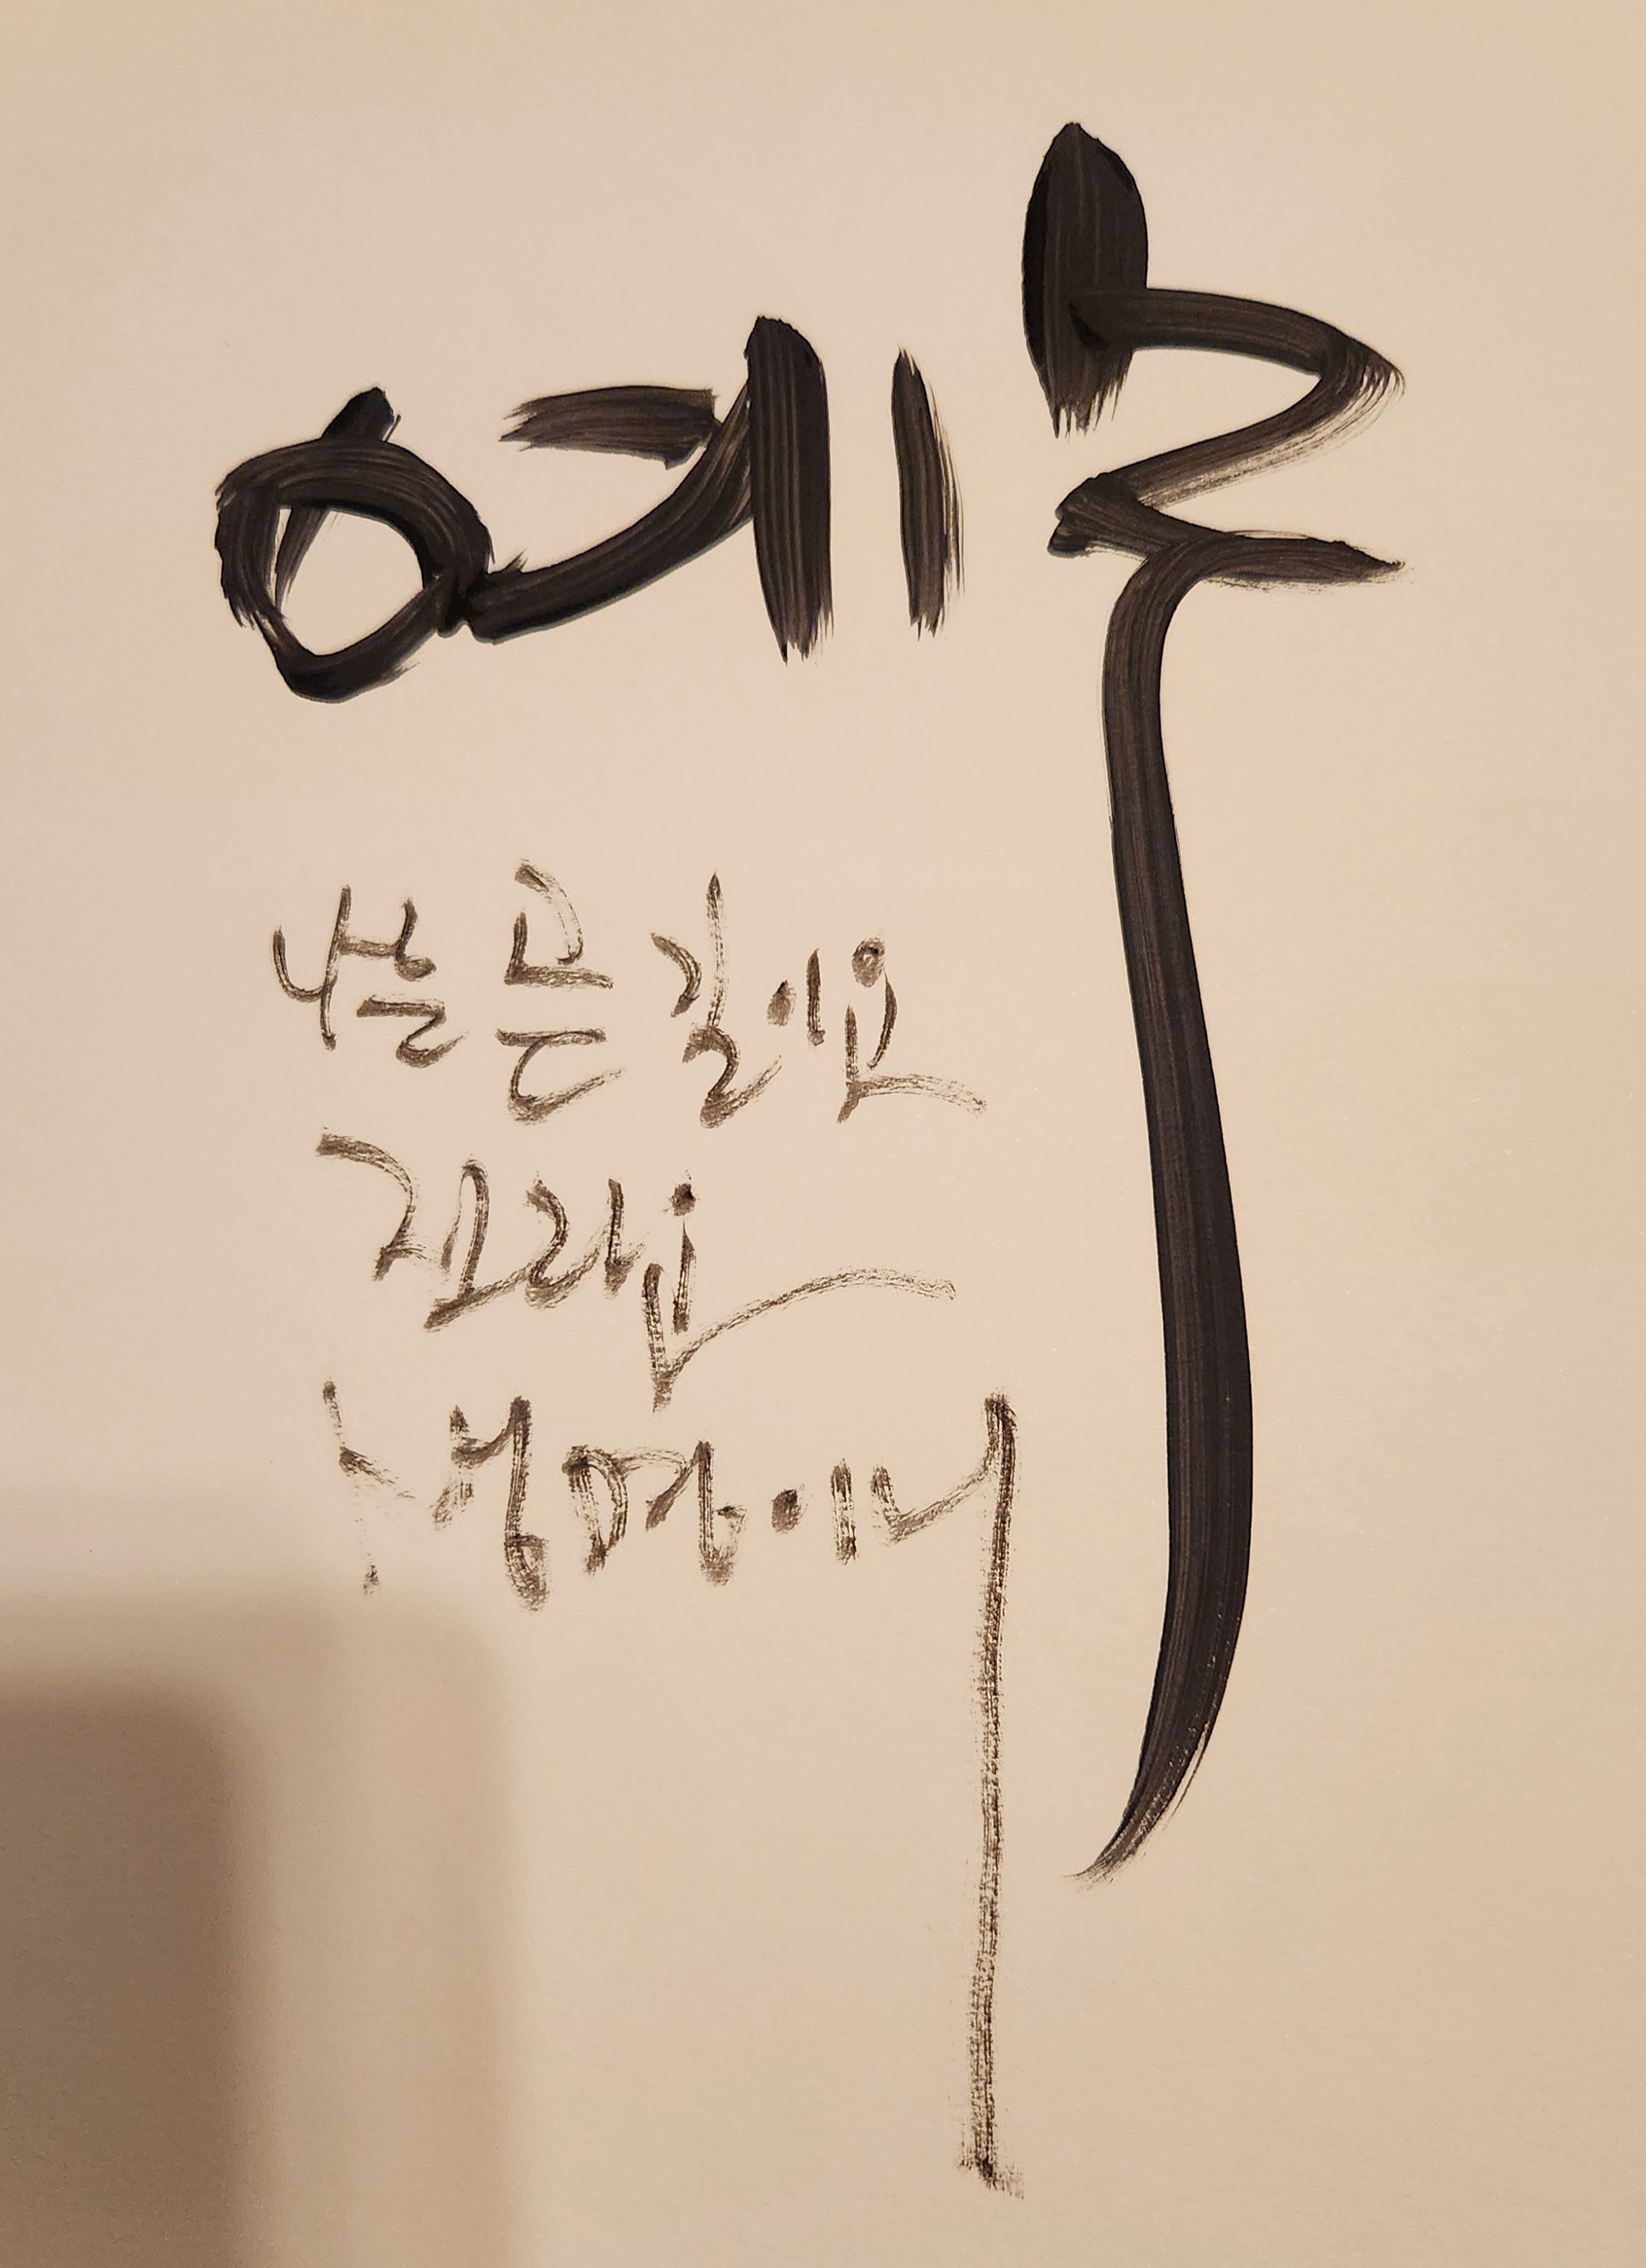 예수
나는 곧 길이요
진리요
생명이니